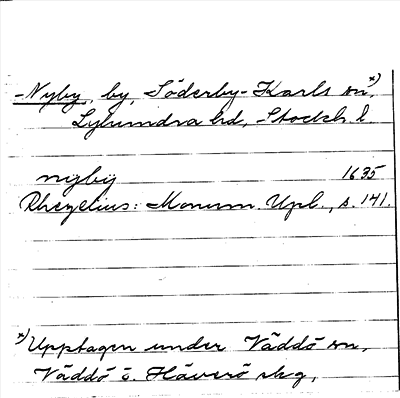 Nyby, by, Söderby-Karls sn,*)
Lyhundra hd, Stockh l
nygby 1635
Rhezelius: Monum. Upl., s. 141.
*) Upptagen under Väddö sn,
Väddö o. Häverö skg,